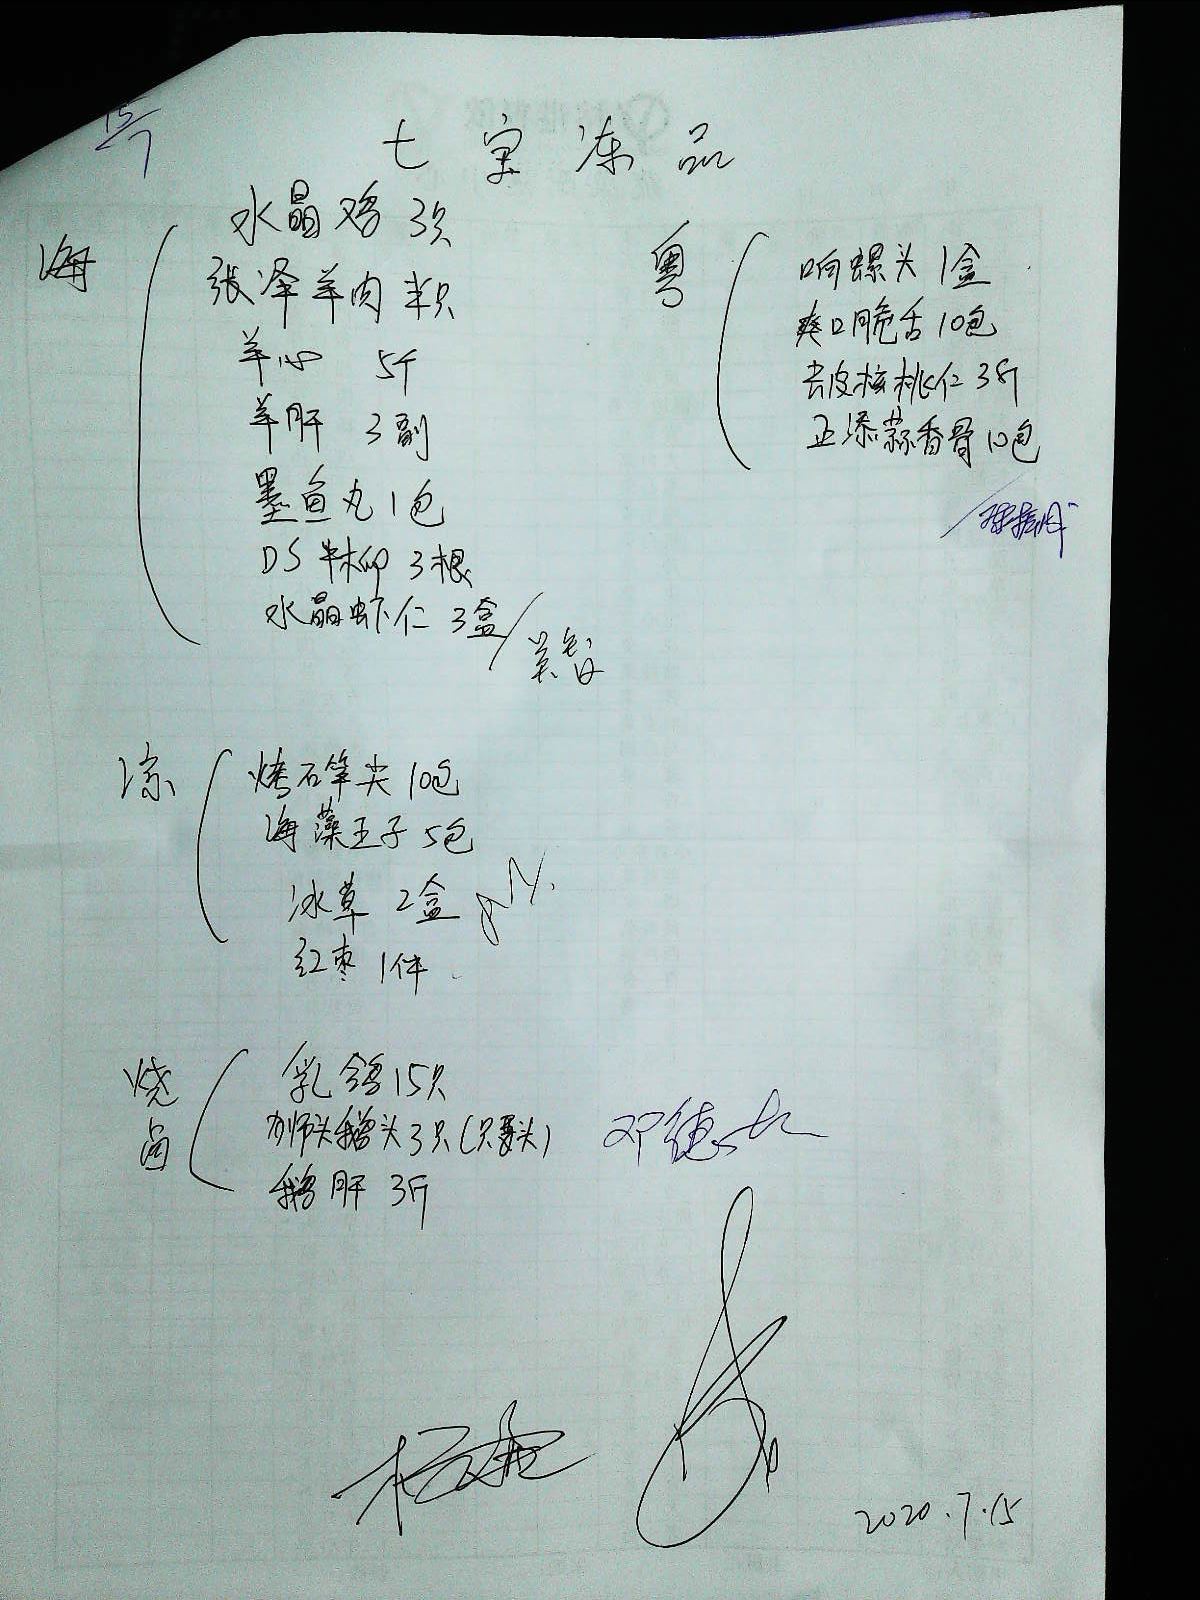 15/7
七宝冻品
海
水晶鸡 3只
张泽羊肉 半只
羊心 5斤
羊肝 3副
墨鱼丸 1包
DS牛柳 3根
水晶虾仁 3盒
粤
响螺头 1盒
爽口脆舌 10包
去皮核桃仁 3斤
正添蒜香骨 10包
凉
烤石笋尖 10包
海藻王子 5包
冰草 2盒
红枣 1件
烧卤
乳鸽 15只
狮头鹅头 3只(只要头)
鹅肝 3斤
2020.7.15